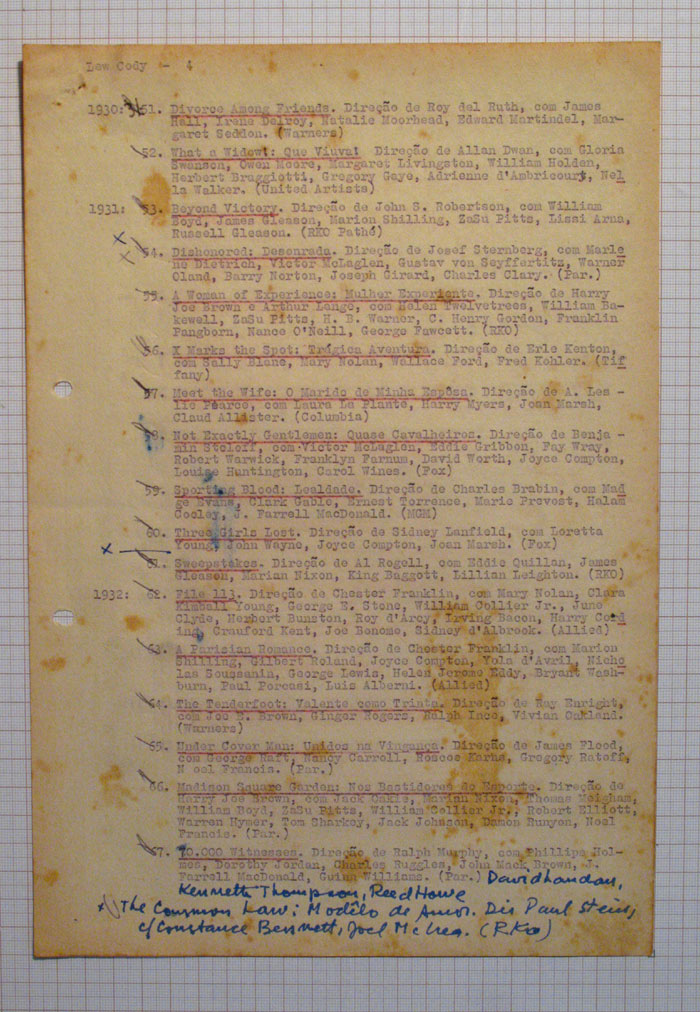 Lew Cody - 4
1930: 51. Divorce Among Friends. Direção de Roy del Ruth, com James
Hall, Irene Delroy, Natalie Moorhead, Edward Martindel, Mar-
garet Seddon. (Warners)
52. What a Widow!: Que Viuva! Direção de Allan Dwan, com Gloria
Swanson, Owen Moore, Margaret Livingston, William Holden,
Herbert Braggiotti, Gregory Gaye, Adrienne d'Ambricourt, Nel
la Walker. (United Artists)
1931: 53. Beyond Victory. Direção de John S. Robertson, com William
Boyd, James Gleason, Marion Shilling, ZaSu Pitts, Lissi Arna,
Russell Gleason. (RKO Pathé)
x
x 54. Dishonored: Desonrada. Direção de Josef Sternberg, com Marle
ne Dietrich, Victor McLaglen, Gustav von Seyffertitz, Warner
Oland, Barry Norton, Joseph Girard, Charles Clary. (Par.)
55. A Woman of Experience: Mulher Experiente. Direção de Harry
Joe Brown e Arthur Lange, com Helen Twelvetrees, William Ba-
kewell, ZaSu Pitts, H. B. Warner, C. Henry Gordon, Franklin
Pangborn, Nance O'Neill, George Fawcett. (RKO)
56. X Marks the Spot: Trágica Aventura. Direção de Erle Kenton,
com Sally Blane, Mary Nolan, Wallace Ford, Fred Kohler. (Tif
fany)
57. Meet the Wife: O Marido de Minha Espôsa. Direção de A. Les -
lie Pearce, com Laura La Plante, Harry Myers, Joan Marsh,
Claud Allister. (Columbia)
58. Not Exactly Gentlemen: Quase Cavalheiros. Direção de Benja -
min Stoloff, com Victor McLaglen, Eddie Gribbon, Fay Wray,
Robert Warwick, Franklyn Farnum, David Worth, Joyce Compton,
Louise Huntington, Carol Wines. (Fox)
59. Sporting Blood: Lealdade. Direção de Charles Brabin, com Mad
ge Evans, Clark Gable, Ernest Torrence, Marie Prevost, Halam
Cooley, J. Farrell MacDonald. (MGM)
60. Three Girls Lost. Direção de Sidney Lanfield, com Loretta
x Young, John Wayne, Joyce Compton, Joan Marsh. (Fox)
61. Sweepstakes. Direção de Al Rogell, com Eddie Quillan, James
Gleason, Marian Nixon, King Baggott, Lillian Leighton. (RKO)
1932: 62. File 113. Direção de Chester Franklin, com Mary Nolan, Clara
Kimball Young, George E. Stone, William Collier Jr., June
Clyde, Herbert Bunston, Roy d'Arcy, Irving Bacon, Harry Cord
ing, Crauford Kent, Joe Bonome, Sidney d'Albrook. (Allied)
63. A Parisian Romance. Direção de Chester Franklin, com Marion
Shilling, Gilbert Roland, Joyce Compton, Yola d'Avril, Nicho
las Soussanin, George Lewis, Helen Jerome Eddy, Bryant Wash-
burn, Paul Porcasi, Luis Alberni. (Allied)
64. The Tenderfoot: Valente como Trinta. Direção de Ray Enright,
com Joe E. Brown, Ginger Rogers, Ralph Ince, Vivian Oakland.
(Warners)
65. Under Cover Man: Unidos na Vingança. Direção de James Flood,
com George Raft, Nancy Carroll, Roscoe Karns, Gregory Ratoff,
N oel Francis. (Par.)
66. Madison Square Garden: Nos Bastidores do Esporte. Direção de
Harry Joe Brown, com Jack Oakie, Marian Nixon, Thomas Meigham,
William Boyd, ZaSu Pitts, William Collier Jr., Robert Elliott,
Warren Hymer, Tom Sharkey, Jack Johnson, Damon Runyon, Noel
Francis. (Par.)
67. 70.000 Witnesses. Direção de Ralph Murphy, com Phillips Hol-
mes, Dorothy Jordan, Charles Ruggles, John Mack Brown, J.
Farrell MacDonald, Guinn Williams. (Par.) David Landau,
Kenneth Thompson, Reed Howe
x The Common Law: Modêlo de Amor. Dir Paul Stein,
c/Constance Bennett, Joel McCrea. (RKO)